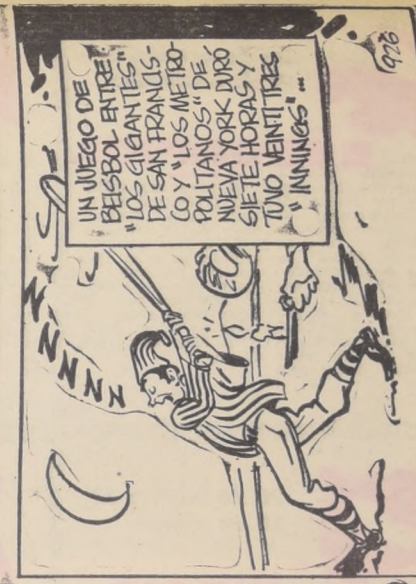 UN JUEGO DE
BEISBOL ENTRE
"LOS GIGANTES"
DE SAN FRANCIS-
CO Y "LOS METRO-
POLITANOS" DE
NUEVA YORK DURÓ
SIETE HORAS Y
TUVO VEINTITRES
"INNINGS"...
926
NNNNN